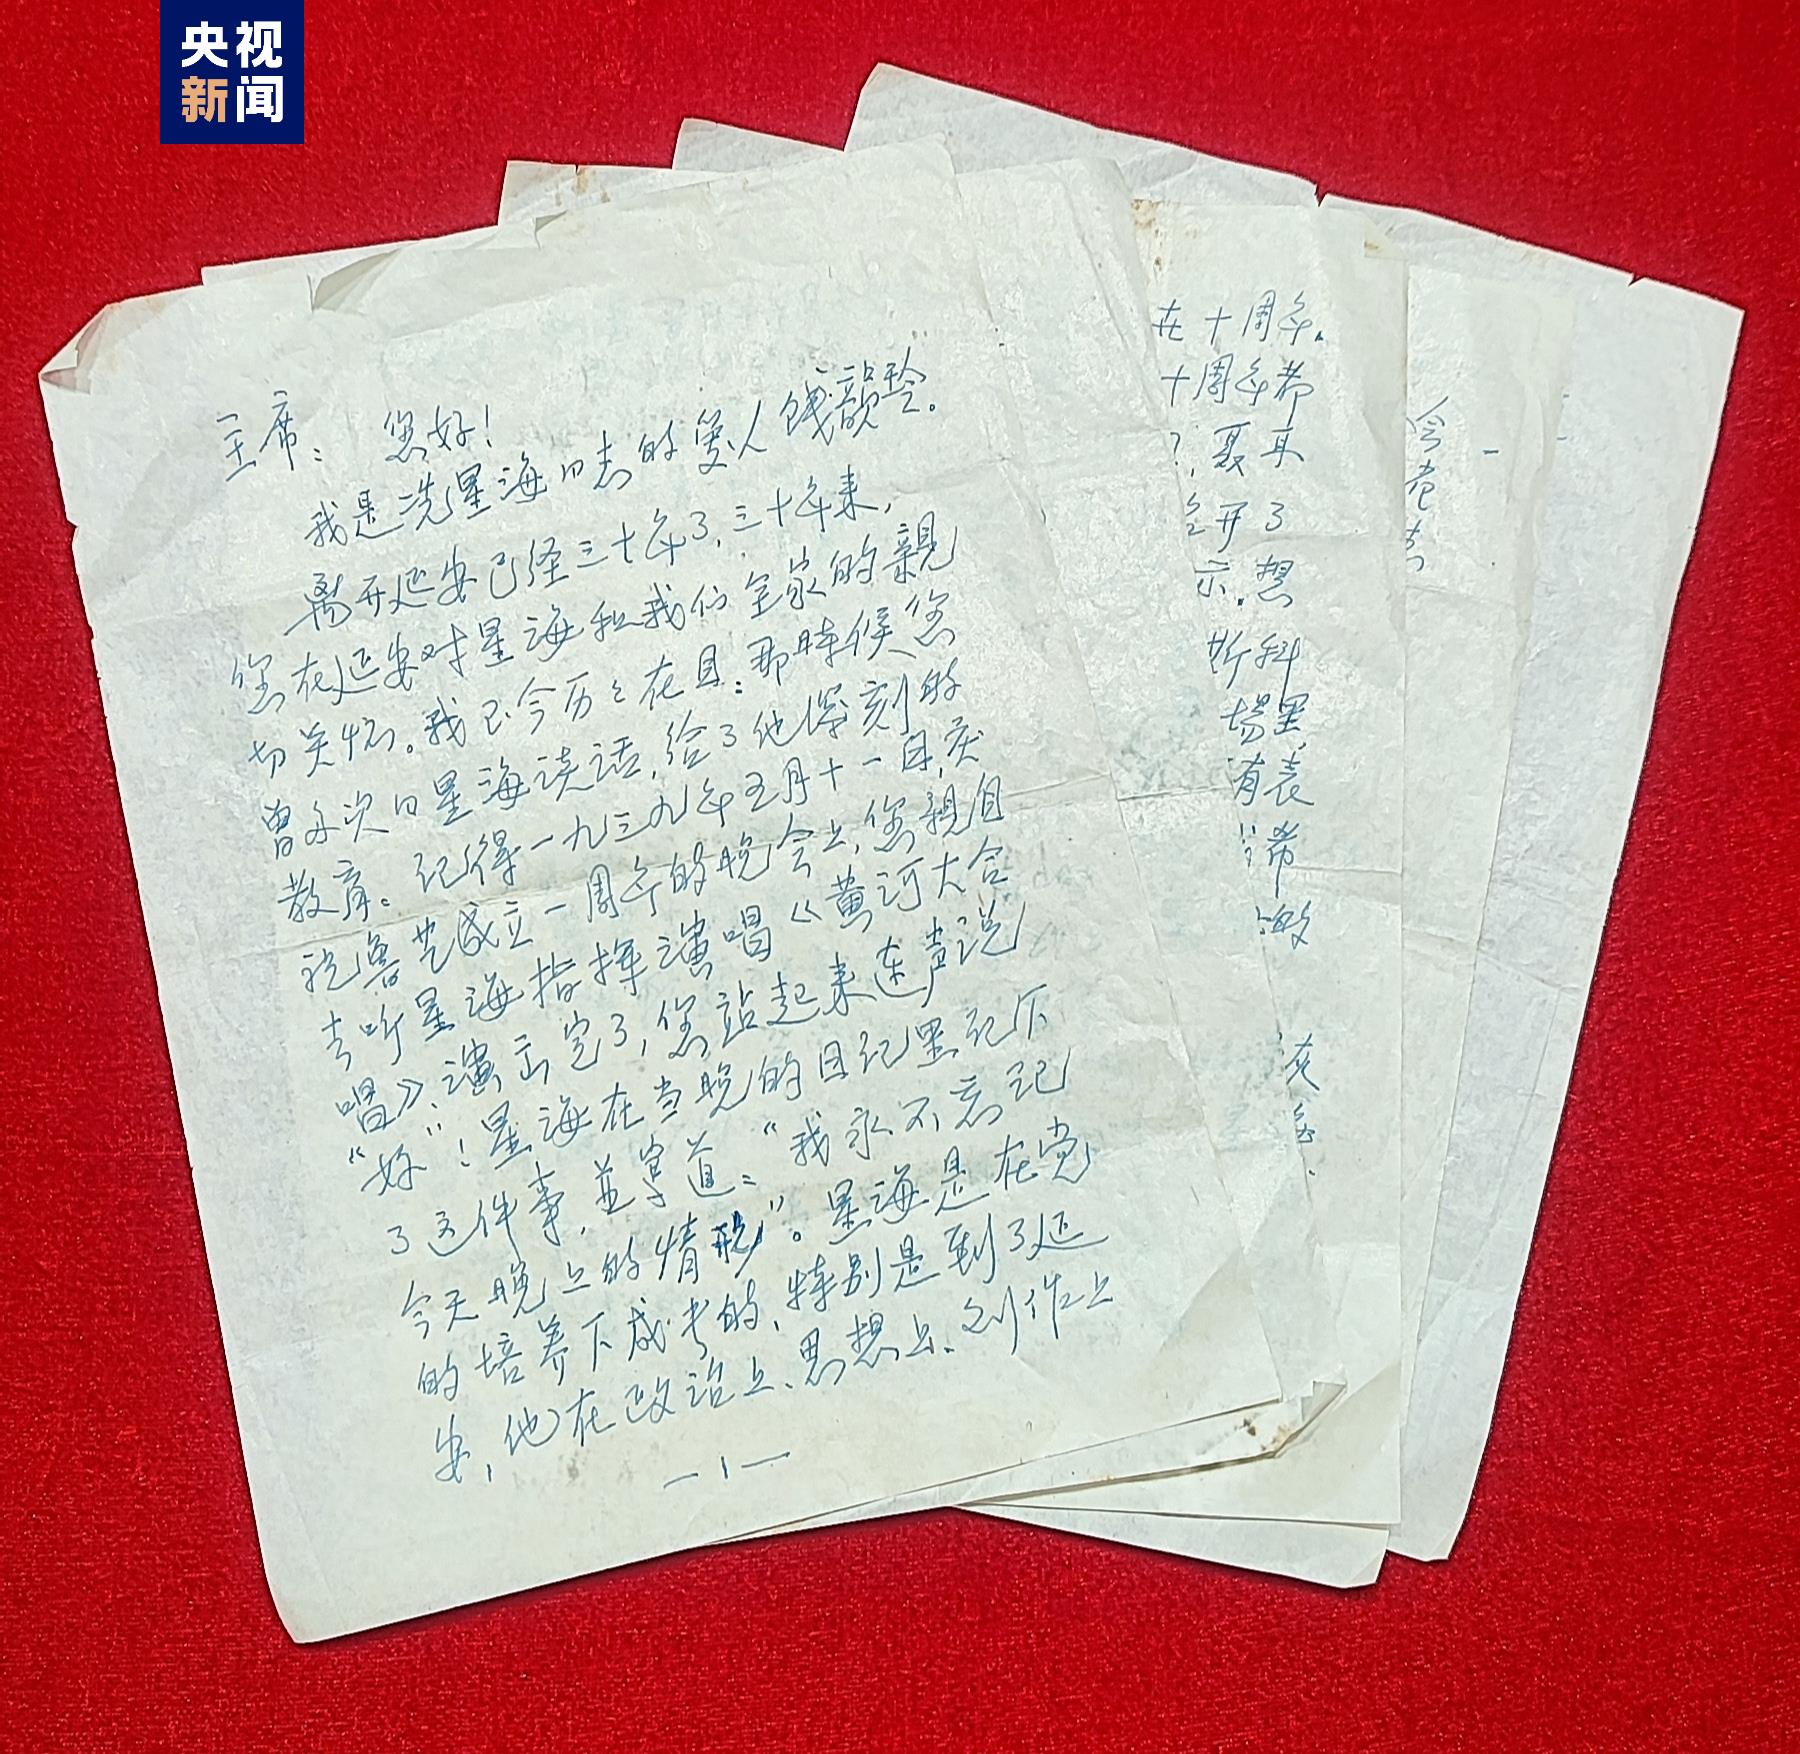 央视
新闻
主席：您好！
我是冼星海同志的爱人钱韵玲。
离开延安已经三十年了，三十年来，
您在延安对星海和我们全家的親
切关怀。我至今历々在目：那時候您
曾多次同星海谈话，给了他深刻的
教育。记得一九三九年五月十一日，庆
祝鲁艺成立一周年的晚会上，您親自
去听星海指挥演唱《黄河大合
唱》，演出完了，您站起来连声说
“好”！星海在当晚的日记里记下
了这件事，並写道：“我永不忘记
今天晚上的情形”。星海是在党
的培养下成长的，特别是到了延
安，他在政治上、思想上、创作上
—1—
在十周年，
十周年都
？，聂耳
开了
示。想
斯科
場里
有表
希
会老志